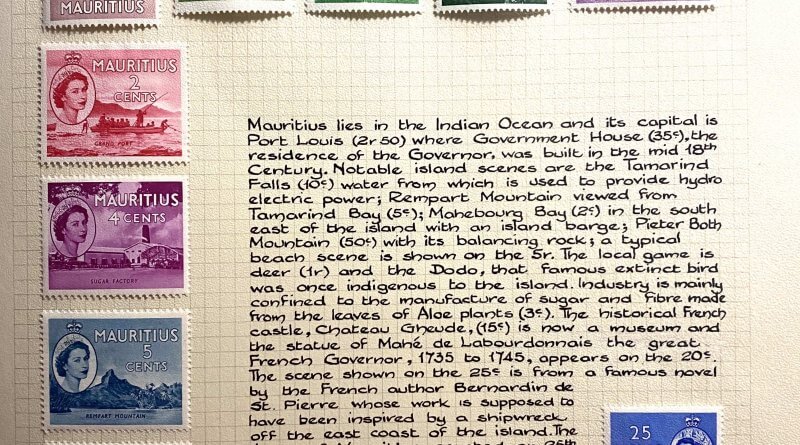 MAURITIUS
MAURITIUS
2
CENTS
GRAND PORT
MAURITIUS
4 CENTS
SUGAR FACTORY
MAURITIUS
5
CENTS
REMPART MOUNTAIN
Mauritius lies in the Indian Ocean and its capital is
Port Louis (2r50) where Government House (35c), the
residence of the Governor, was built in the mid 18th
Century. Notable island scenes are the Tamarind
Falls (10c) water from which is used to provide hydro
electric power; Rempart Mountain viewed from
Tamarind Bay (5c); Mahebourg Bay (2c) in the south
east of the island with an island barge; Pieter Both
Mountain (50c) with its balancing rock; a typical
beach scene is shown on the 5r. The local game is
deer (1r) and the Dodo, that famous extinct bird
was once indigenous to the island. Industry is mainly
confined to the manufacture of sugar and fibre made
from the leaves of Aloe plants (3c). The historical French
castle, Chateau Gheude, (15c) is now a museum and
the statue of Mahé de Labourdonnais the great
French Governor, 1735 to 1745, appears on the 20c.
The scene shown on the 25c is from a famous novel
by the French author Bernardin de
St. Pierre whose work is supposed to
have been inspired by a shipwreck
off the east coast of the island. The
25